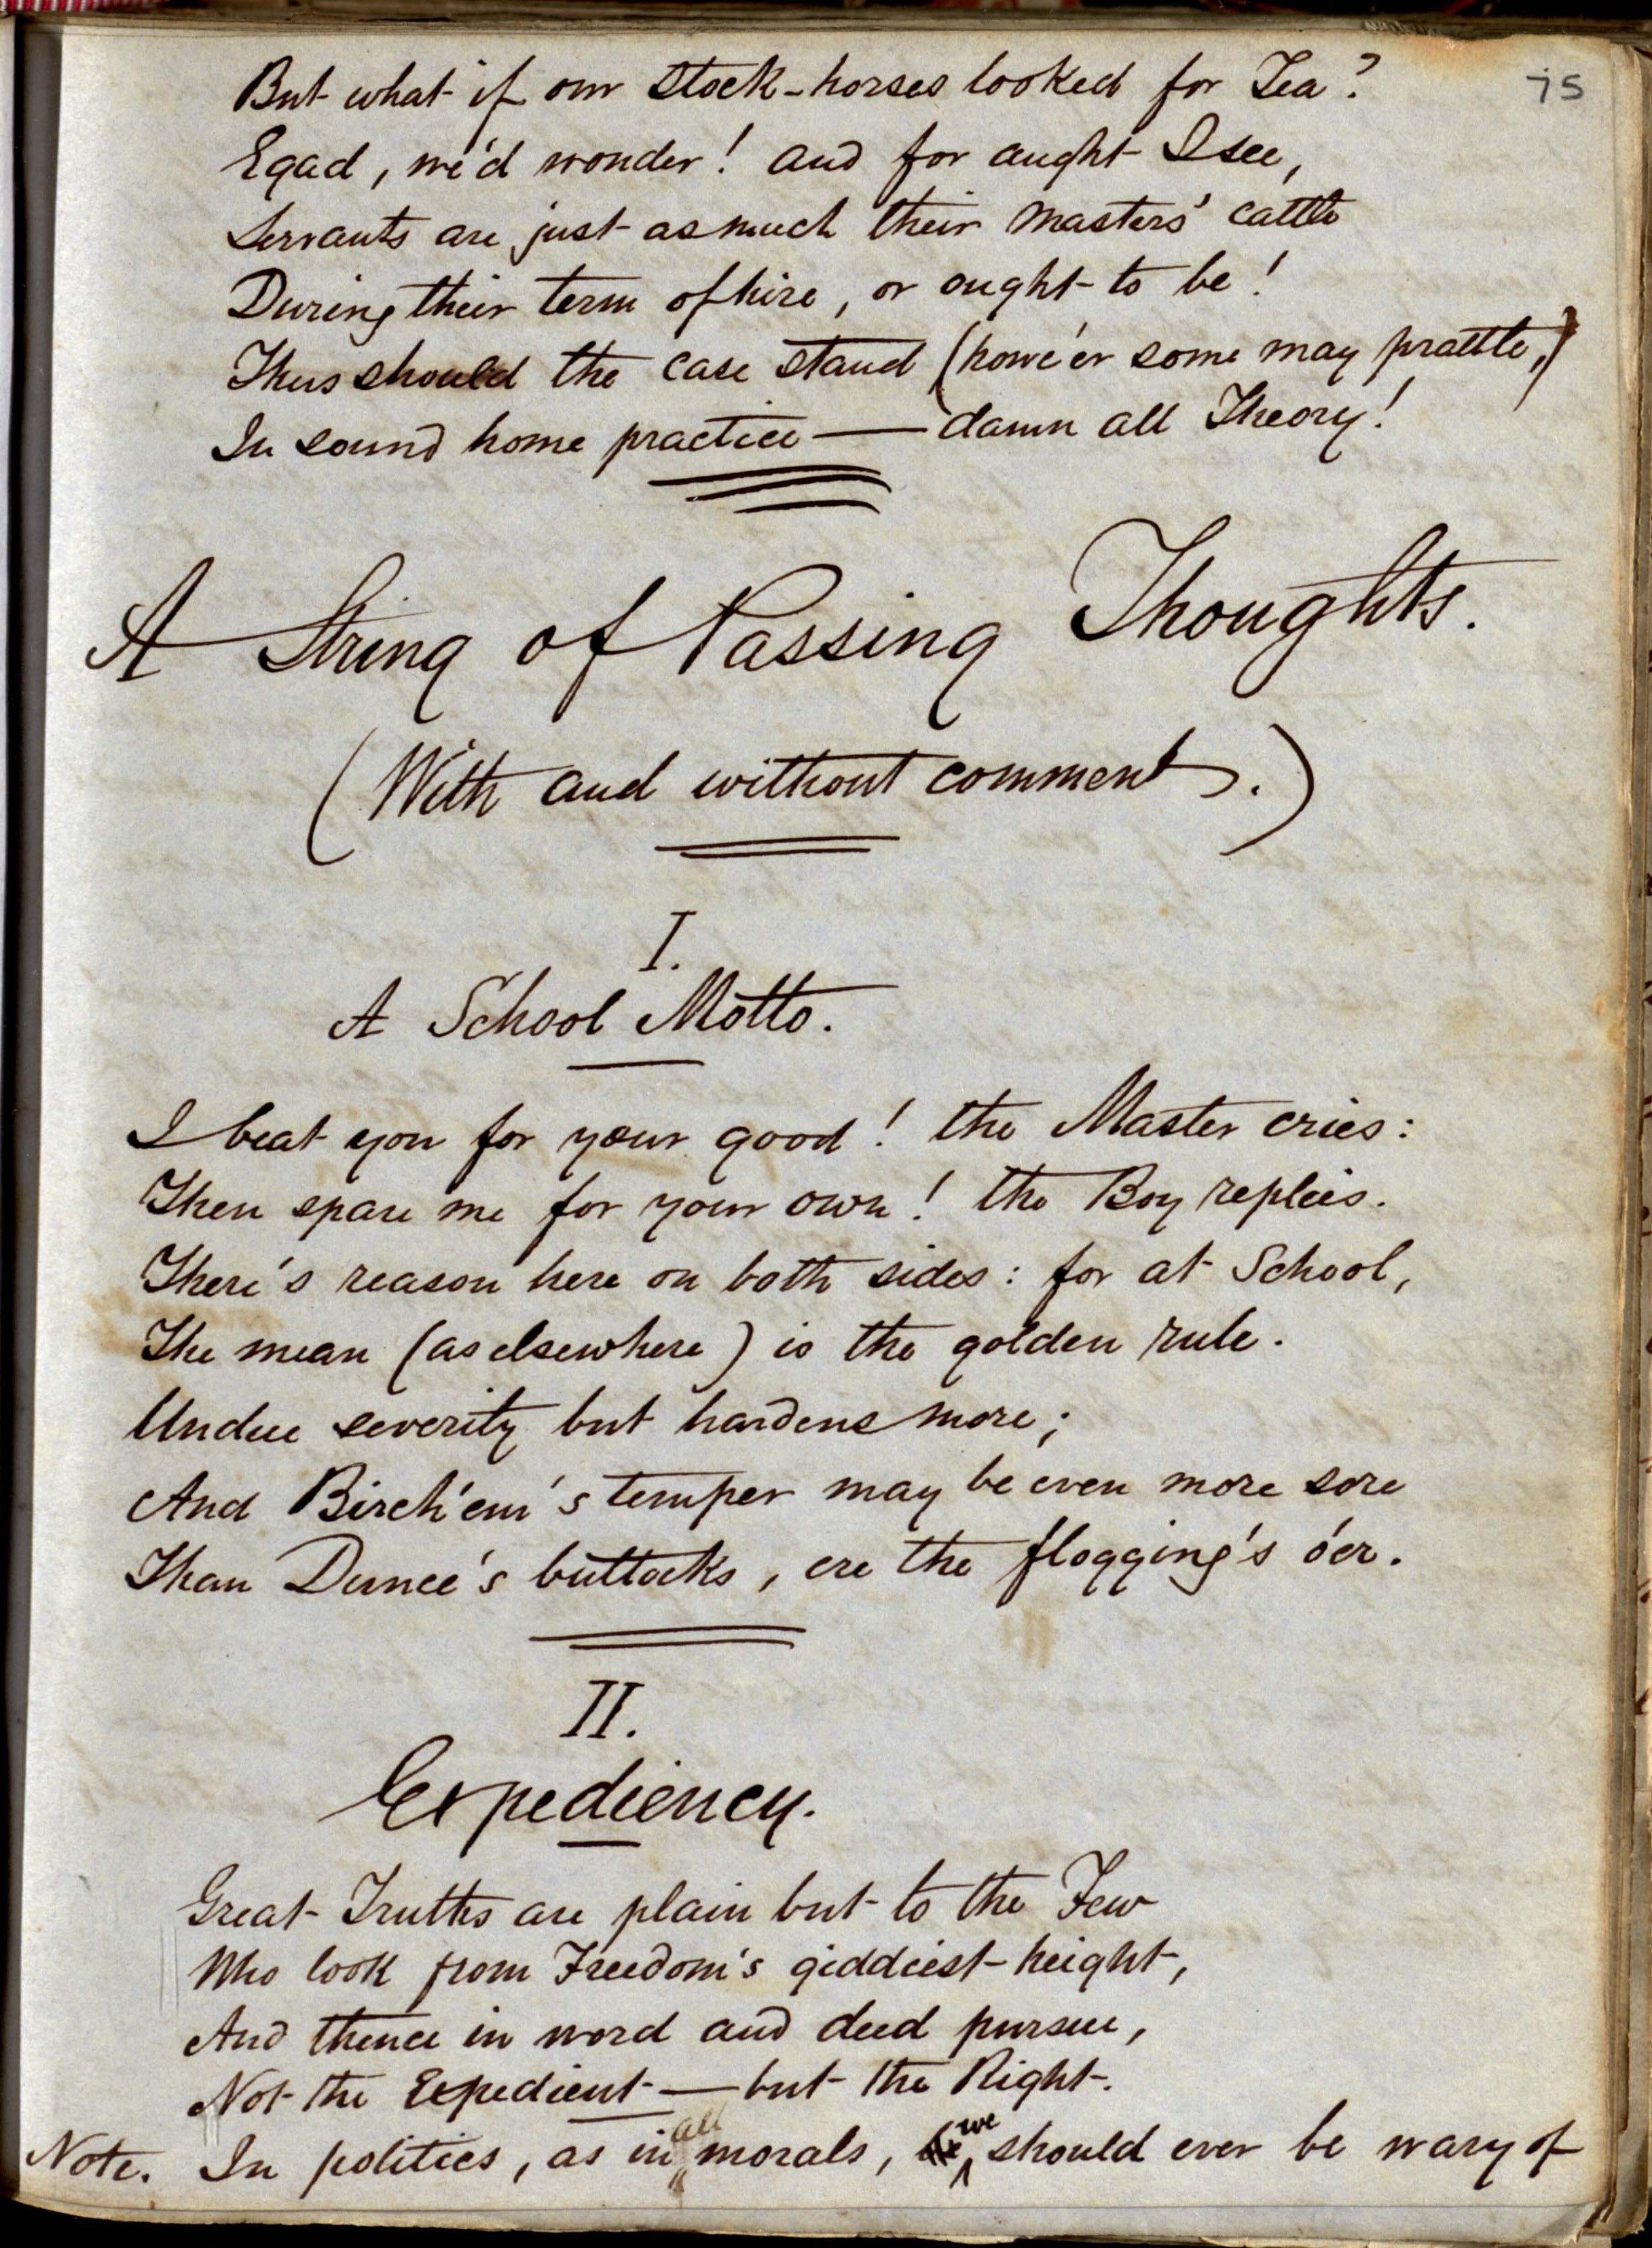 75
But what if our stock-horses looked for Tea?
Egad, we'd wonder! and for aught I see,
Servants are just as much their masters' cattle
During their term of hire, or ought to be!
Thus should the case stand (howe'er some may prattle,)
In sound home practice — damn all Theory!
A String of Passing Thoughts.
(With and without comments.)
I.
A School Motto.
I beat you for your good! the Master cries:
Then spare me for your own! the Boy replies.
There's reason here on both sides: for at School,
The mean (as elsewhere) is the golden rule.
Undue severity but hardens more;
And Birch'em's temper may be even more sore
Than Dunce's buttocks, ere the flogging's o'er.
II.
Expediency.
Great Truths are plain but to the Few
Who look from Freedom's giddiest height,
And thence in word and deed pursue,
Not the Expedient — but the Right.
Note. In politics, as in all morals, we should ever be wary of